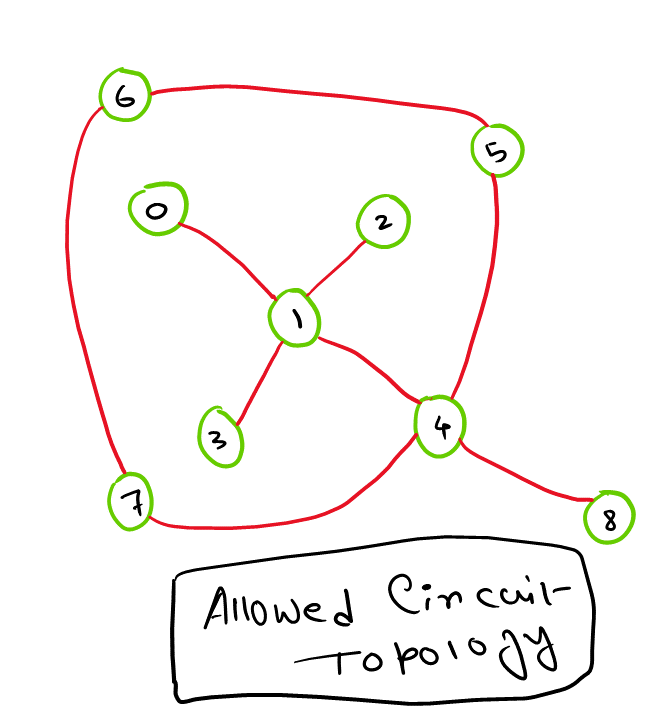 6
5
0
2
1
3
4
7
8
Allowed Circuit
Topology